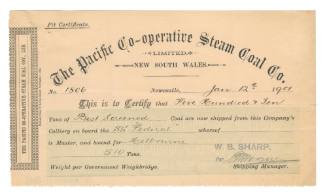 Pit Certificate.
The Pacific Co-operative Steam Coal Co.
LIMITED.
NEW SOUTH WALES.
No. 1806 Newcastle, Jan 12th 1901
This is to Certify that Five Hundred & Ten
Tons of Best Screened Coal are now shipped from this Company's
Colliery on board the "Federal" whereof
is Master, and bound for Melbourne
510 Tons.
W. B. SHARP.
Weight per Government Weighbridge.
Shipping Manager.
THE PACIFIC CO-OPERATIVE STEAM COAL COY. LTD.